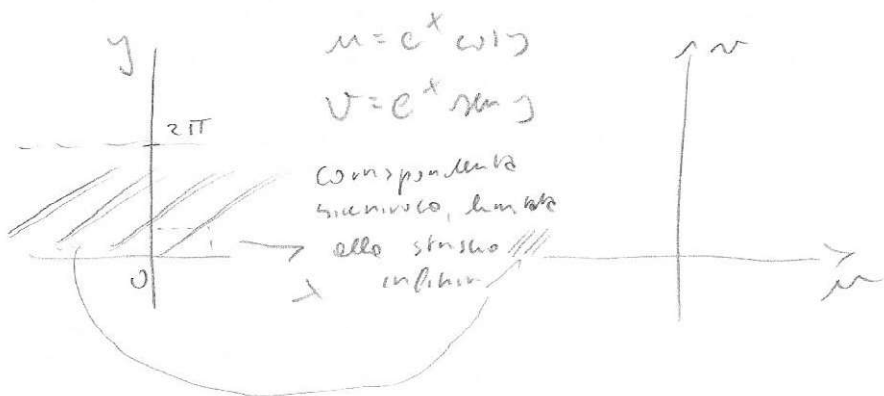 y
u = e^x cos y
v
v = e^x sen y
2π
corrispondenza
biunivoca, limitata
alla striscia
infinita
0
x
u